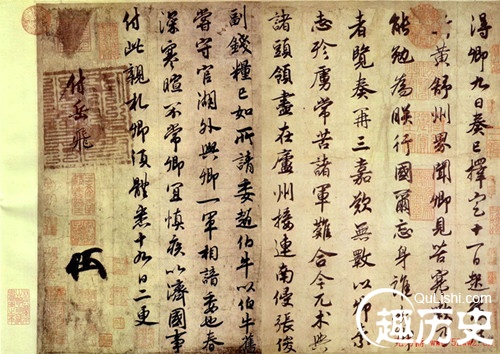 得卿九日奏已擇定十一日起
黃舒州界聞卿見苦寒嗽乃
能勉為朕行國爾忘身誰
者覽奏再三嘉歎無數以卿素
志殄虜常苦諸軍難合今兀朮與
諸頭領盡在廬州接連南侵張俊
副錢糧已如所請委趙伯牛以伯牛舊
嘗守官湖外與卿一軍相諳委也春
深寒暄不常卿宜慎疾以濟國事
付此親札卿須體悉十九日二更
付岳飛
QuLiShi.com
趣历史